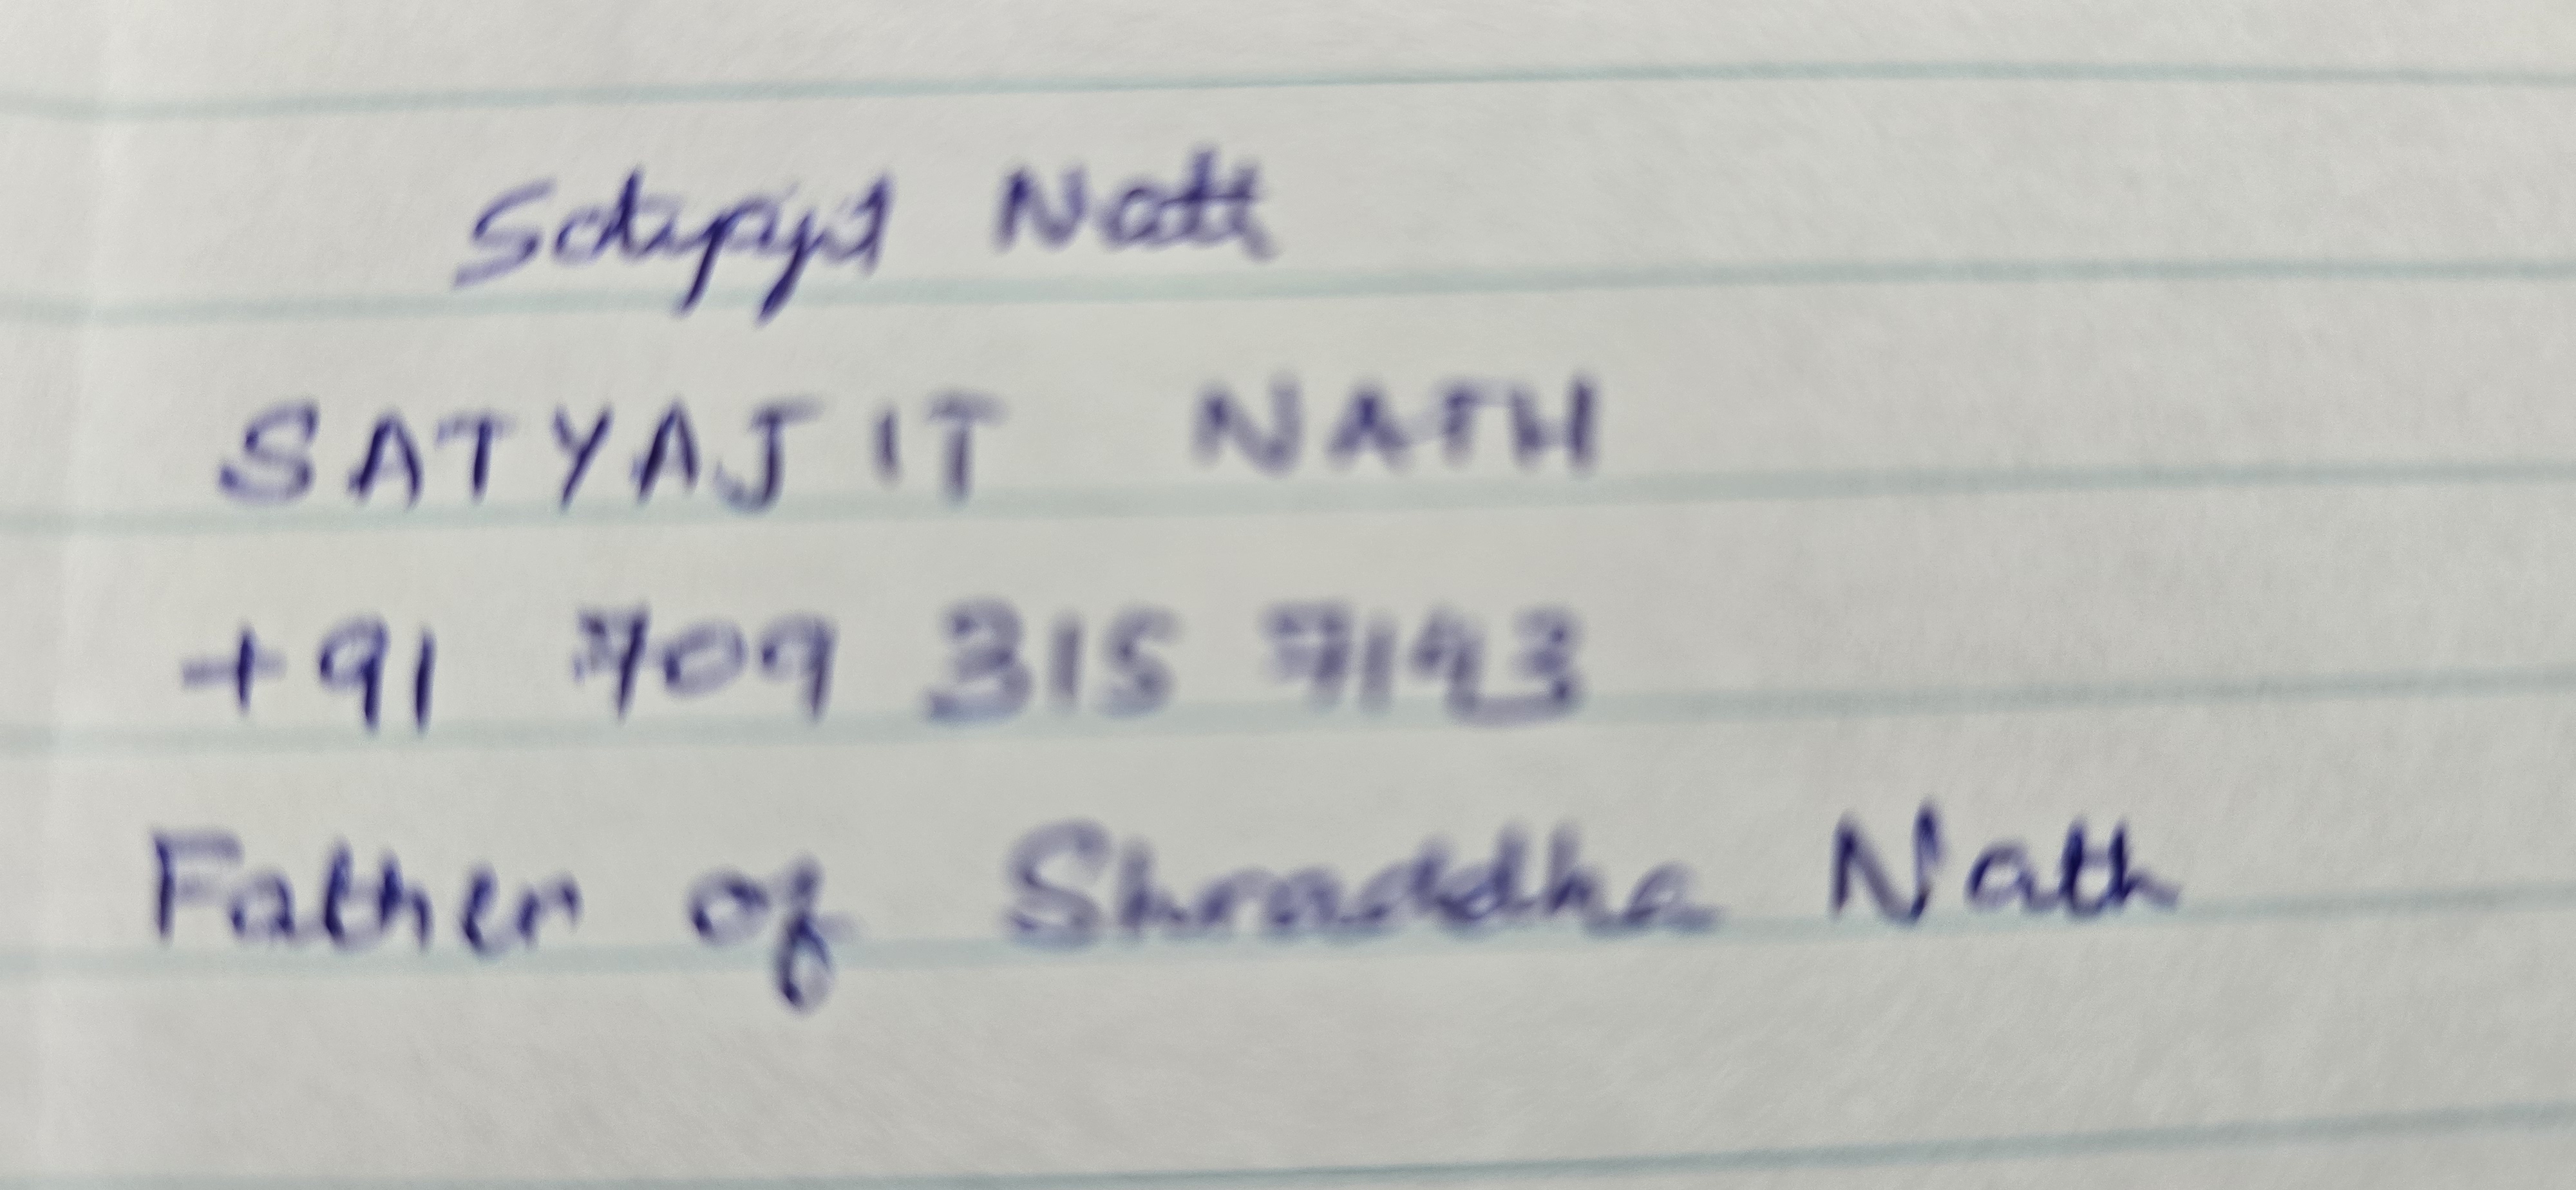 Satyajit Nath
SATYAJIT NATH
+91 709 315 7193
Father of Shraddha Nath